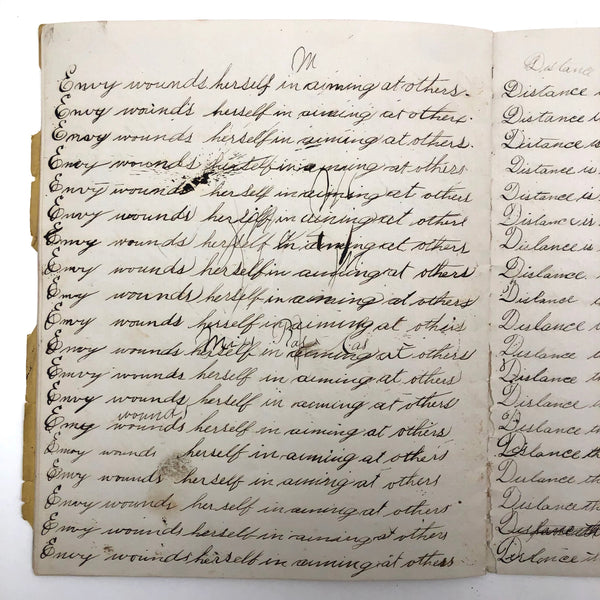 M
Envy wounds herself in aiming at others.
Envy wounds herself in aiming at others.
Envy wounds herself in aiming at others.
Envy wounds herself in aiming at others
Envy wounds herself in aiming at others
Envy wounds herself in aiming at others
Envy wounds herself in aiming at others
Envy wounds herself in aiming at others
Envy wounds herself in aiming at others
Envy wounds herself in aiming at others
Envy wounds herself in aiming at others
Envy wounds herself in aiming at others
Envy wounds herself in aiming at others
wounds
Envy wounds herself in aiming at others
Envy wounds herself in aiming at others
Envy wounds herself in aiming at others
Envy wounds herself in aiming at others
Envy wounds herself in aiming at others
Envy wounds herself in aiming at others
Distance
Distance i
Distance i
Distance is
Distance is
Distance is
Distance is
Distance is
Distance
Distance i
Distance
Distance th
Distance th
Distance th
Distance th
Distance th
Distance th
Distance th
Distance th
Distance is